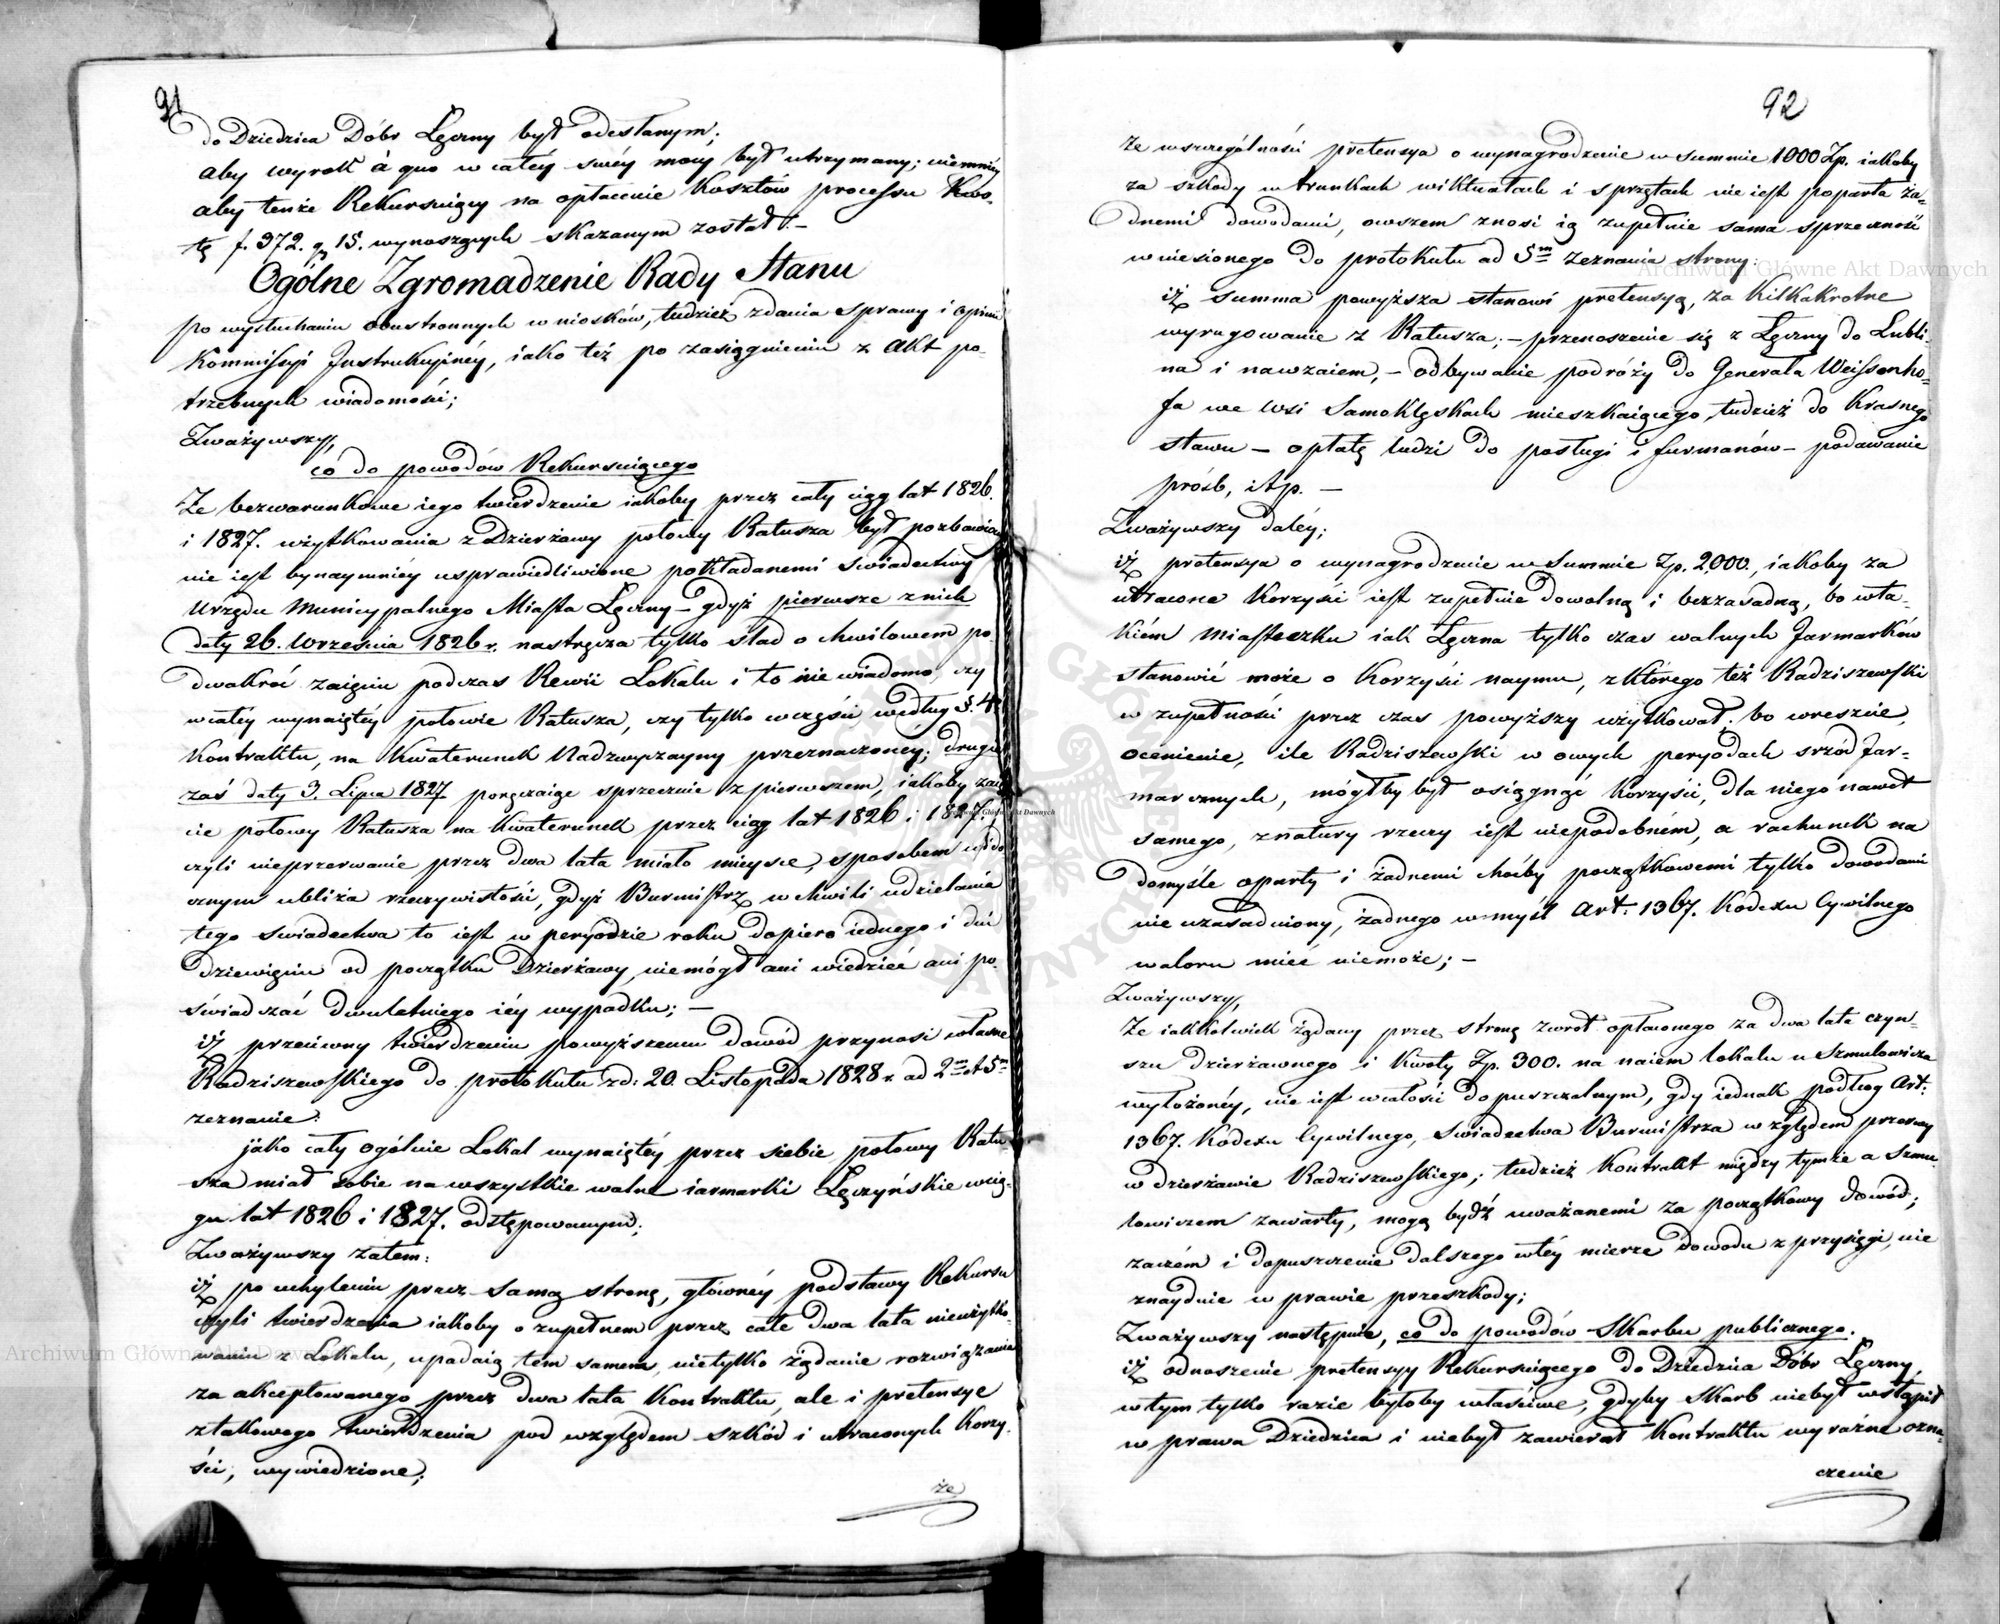 91
do Dziedzica Dóbr Łęczny był odesłanym;
aby wyrok à quo w całéy swéy mocy był utrzymany; niemniéy
aby tenże Rekursuiący na opłacenie Kosztów processu Kwo-
tę f. 372. g 15. wynoszących skazanym został.—
Ogólne Zgromadzenie Rady Stanu
po wysłuchaniu obustronnych wniosków, tudzież zdania sprawy i opinii
Kommissyi Instrukcyinéy, iako też po zasiągnieniu z Akt po-
trzebnych wiadomości;
Zważywszy,
co do powodów Rekursuiącego
Ze bezwarunkowe iego twierdzenie iakoby przez cały ciąg lat 1826.
i 1827. użytkowania z Dzierżawy połowy Ratusza był pozbawion
nie iest bynaymniéy usprawiedliwione pokładanemi Swiadectwy
Urzędu Municypalnego Miasta Łęczny — gdyż pierwsze z nich
daty 26. Września 1826 r. nastręcza tylko ślad o chwilowem po-
dwakroć zaięciu podczas Rewii Lokalu i to nie wiadomo, czy
w całéy wynaiętéy połowie Ratusza, czy tylko w części według §. 4
Kontraktu, na Kwaterunek Nadzwyczayny przeznaczoney; drugie
zaś daty 3. Lipca 1827 poręczaiąc sprzecznie z pierwszem, iakoby zaię-
cie połowy Ratusza na Kwaterunek przez ciąg lat 1826 i 1827,
czyli nieprzerwanie przez dwa lata miało mieysce, sposobem wido-
cznym ubliża rzeczywistości, gdyż Burmistrz w chwili udzielania
tego Swiadectwa to iest w peryodzie roku dopiero iednego i dni
dziewięciu od początku Dzierżawy, niemógł ani wiedzieć ani po-
świadczać dwuletniego iéy wypadku; —
iż przeciwny twierdzeniu powyższemu dowód przynosi własne
Radziszewskiego do protokułu z d: 20. Listopada 1828 r. ad 2m et 5m
zeznanie:
jako cały ogólnie Lokal wynaiętéy przez siebie połowy Ratu-
sza miał sobie na wszystkie walne iarmarki Łęczyńskie w cią-
gu lat 1826 i 1827. odstępowanym;
Zważywszy zatem:
iż po uchyleniu przez samą stronę, głównéy podstawy Rekursu
czyli twierdzenia iakoby o zupełnem przez całe dwa lata nieużytko-
waniu z Lokalu, upadaią tem samem, nietylko żądanie rozwiązania
zaakceptowanego przez dwa lata Kontraktu, ale i pretensye
z takowego twierdzenia pod względem szkód i utraconych Korzy-
ści, wywiedzione;
że
92
że w szczególności pretensya o wynagrodzenie w summie 1000 Zp. iakoby
za szkody w trunkach wiktuałach i sprzętach nie iest poparta ża-
dnemi dowodami, owszem znosi ią zupełnie sama sprzeczność
wniesionego do protokułu ad 5m zeznania strony:
iż summa powyższa stanowi pretensyą, za Kilkakrotne
wyrugowanie z Ratusza; — przenoszenie się z Łęczny do Lubli-
na i nawzaiem, — odbywanie podróży do Generała Weissenho-
fa we wsi Samoklęskach mieszkaiącego, tudzież do Krasnego
stawu — opłatę ludzi do posługi i furmanów — podawanie
prośb, itp. —
Zważywszy daléy;
iż pretensya o wynagrodzenie w Summie Zp. 2,000., iakoby za
utracone Korzyści iest zupełnie dowolną i bezzasadną, bo w ta-
kiém Miasteczku iak Łęczna tylko czas walnych Jarmarków
stanowić może o Korzyści naymu, z którego też Radziszewski
w zupełności przez czas powyższy użytkował. bo wreszcie,
ocenienie, ile Radziszewski w owych peryodach srzód Jar-
marcznych, mógłby był osiągnąć Korzyści, dla niego nawet
samego, z natury rzeczy iest niepodobném, a rachunek na
domyśle oparty i żadnemi choćby początkowemi tylko dowodami
nie uzasadniony, żadnego w myśl Art: 1367. Kodexu Cywilnego
waloru mieć niemoże; —
Zważywszy,
Ze iakkolwiek żądany przez stronę zwrot opłaconego za dwa lata czyn-
szu dzierżawnego i Kwoty Zp. 300. na naiem lokalu u Szmulowicza
wyłożonéy, nie iest w całości dopuszczalnym, gdy iednak podług Art:
1367. Kodexu Cywilnego, Swiadectwa Burmistrza względem przerwy
w dzierżawie Radziszewskiego; tudzież Kontrakt między tymże a Szmu-
lowiczem zawarty, mogą bydź uważanemi za początkowy dowód;
zaczém i dopuszczenie dalszego w téy mierze dowodu z przysięgi, nie
znaydnie w prawie przeszkody;
Zważywszy następnie, co do powodów Skarbu publicznego.
iż odnoszenie pretensyy Rekursuiącego do Dziedzica Dóbr Łęczny,
w tym tylko razie byłoby właściwe, gdyby Skarb niebył wstąpił
w prawa Dziedzica i niebył zawierał Kontraktu wyraźne ozna-
czenie
Archiwum Główne Akt Dawnych
Archiwum Główne Akt Dawnych
Archiwum Główne Akt Dawnych